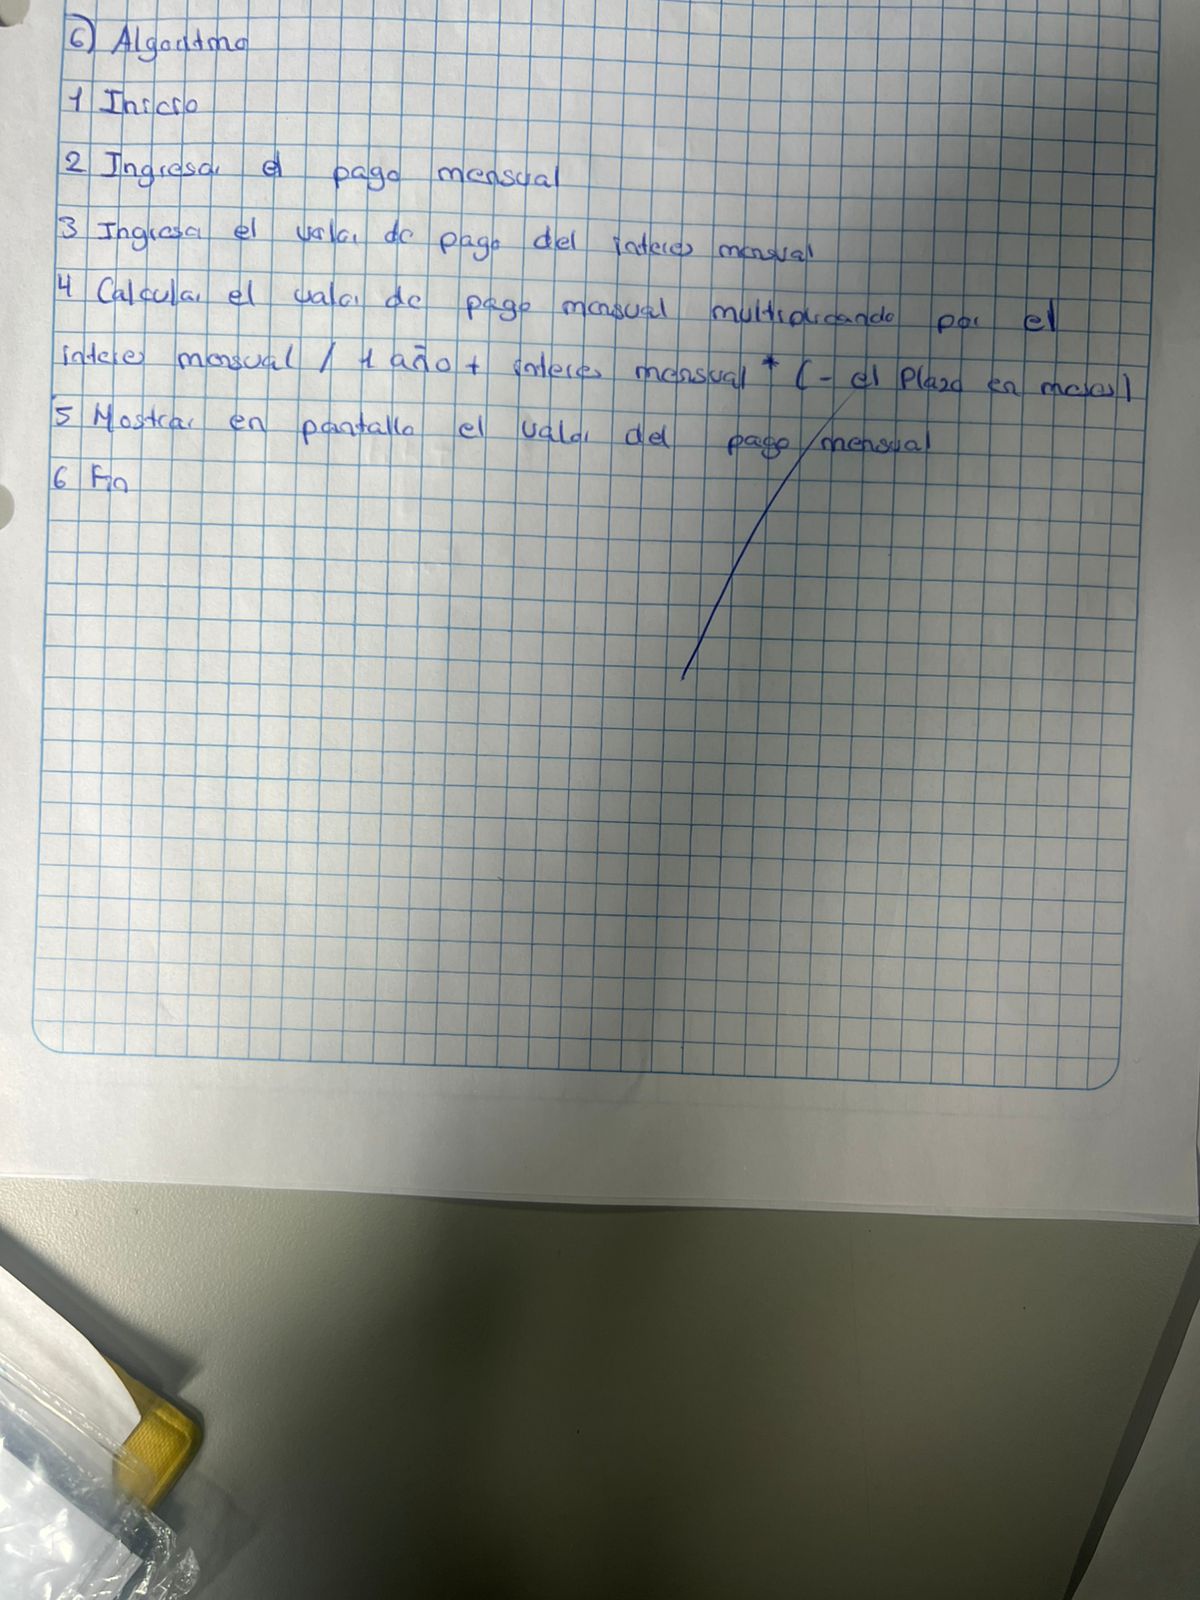 6) Algoritmo
1 Inicio
2 Ingresar el pago mensual
3 Ingresa el valor de pago del interes mensual
4 Calcular el valor de pago mensual multiplicando por el
interes mensual / 1 año + interes mensual * (- el Plazo en meses)
5 Mostrar en pantalla el valor del pago mensual
6 Fin